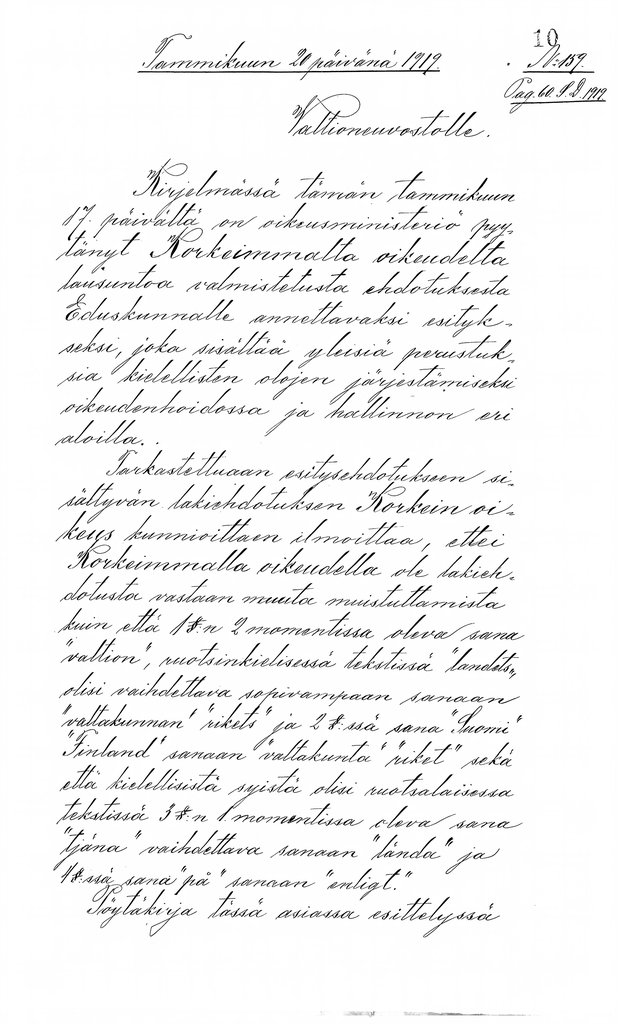 10
Tammikuun 20 päivänä 1919.
N:159.
Pag. 60. S.D. 1919.
Valtioneuvostolle.
Kirjelmässä tämän tammikuun
17. päivältä on oikeusministeriö pyy-
tänyt Korkeimmalta oikeudelta
lausuntoa valmistetusta ehdotuksesta
Eduskunnalle annettavaksi esityk-
seksi, joka sisältää yleisiä perustuk-
sia kielellisten olojen järjestämiseksi
oikeudenhoidossa ja hallinnon eri
aloilla.
Tarkastettuaan esitysehdotukseen si-
sältyvän lakiehdotuksen Korkein oi-
keus kunnioittaen ilmoittaa, ettei
Korkeimmalla oikeudella ole lakieh-
dotusta vastaan muuta muistuttamista
kuin että 1 §:n 2 momentissa oleva sana
"valtion", ruotsinkielisessä tekstissä "landets",
olisi vaihdettava sopivampaan sanaan
"valtakunnan" "rikets" ja 2 §:ssä sana "Suomi"
"Finland" sanaan "valtakunta" "riket" sekä
että kielellisistä syistä olisi ruotsalaisessa
tekstissä 3 §:n 1 momentissa oleva sana
"tjäna" vaihdettava sanaan "lända" ja
4 §:ssä sana "på" sanaan "enligt."
Pöytäkirja tässä asiassa esittelyssä